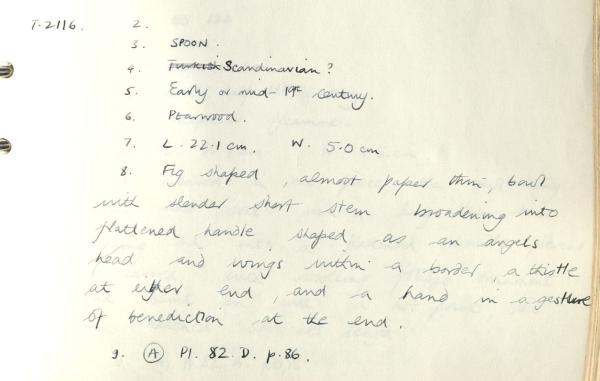 T-2116. 2.
3. SPOON.
4. Turkish Scandinavian?
5. Early or mid-19th century.
6. Pearwood.
7. L. 22.1 cm. W. 5.0 cm
8. Fig shaped, almost paper thin, bowl
with slender short stem broadening into
flattened handle shaped as an angels
head and wings within a border, a thistle
at either end, and a hand in a gesture
of benediction at the end.
9. (A) Pl. 82. D. p. 86.